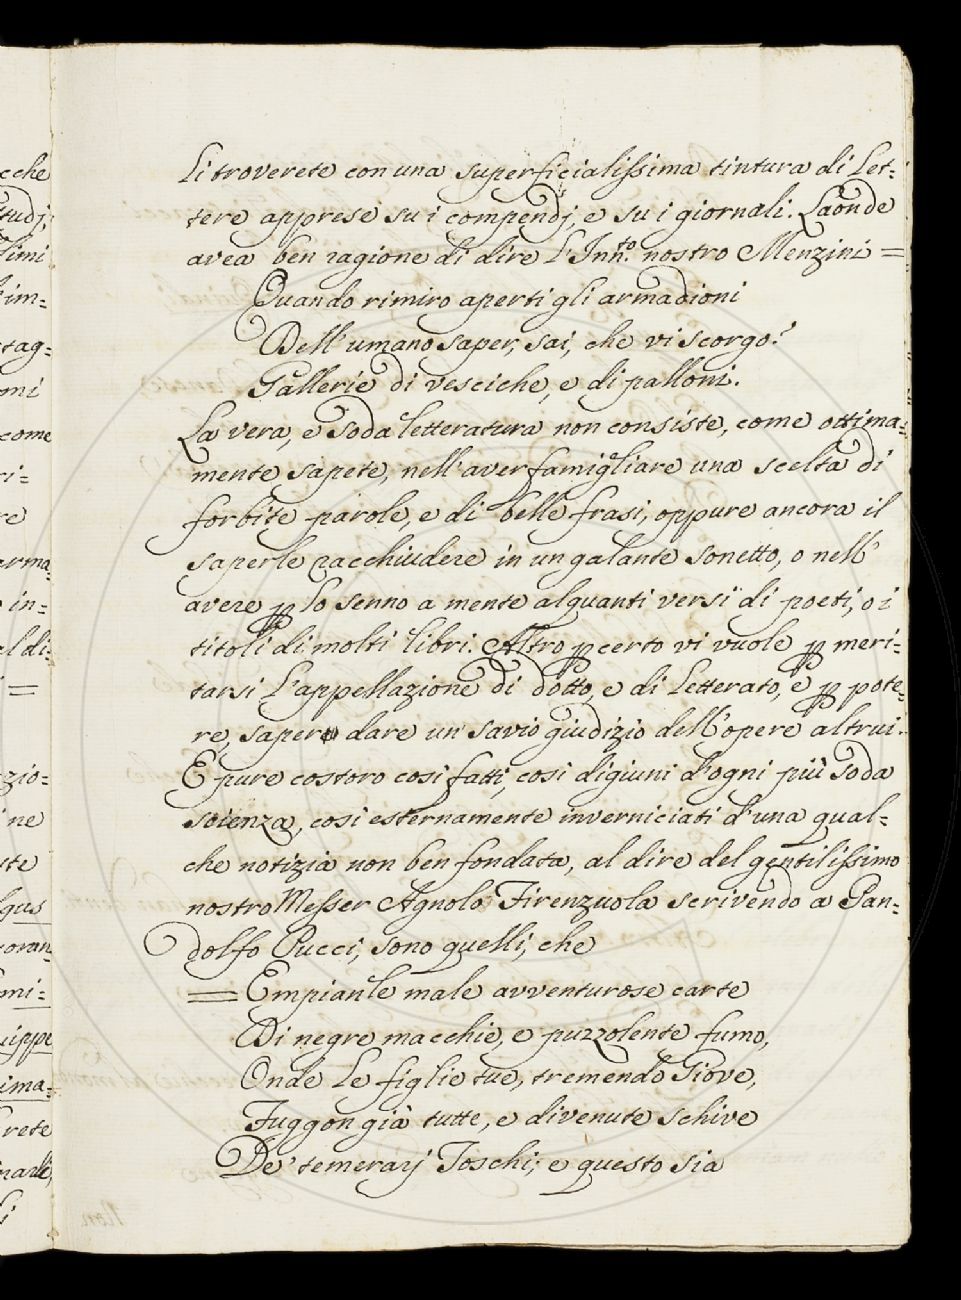 Li troverete con una superficialissima tintura di Let=
tere apprese su i compendj, e su i giornali. Laonde
avea ben ragione di dire l'Inh.to nostro Menzini =
Quando rimiro aperti gli armadioni
Dell'umano saper, sai, che vi scorgo?
Gallerie di vesciche, e di palloni.
La vera, e soda letteratura non consiste, come ottima=
mente sapete, nell'aver famigliare una scelta di
forbite parole, e di belle frasi, oppure ancora il
saperle racchiudere in un galante sonetto, o nell'
avere p lo senno a mente alquanti versi di poeti, o i
titoli di molti libri. Altro p certo vi vuole p meri=
tarsi l'appellazione di dotto, e di Letterato, e p pote=
re, sapere dare un savio giudizio dell'opere altrui.
E pure costoro così fatti, così digiuni d'ogni più soda
scienza, così esternamente inverniciati d'una qual=
che notizia non ben fondata, al dire del gentilissimo
nostro Messer Agnolo Firenzuola scrivendo a Pan=
dolfo Pucci, sono quelli, che
= Empian le male avventurose carte
Di negre macchie, e puzzolente fumo,
Onde le figlie tue, tremendo Giove,
Fuggon già tutte, e divenute schive
De' temerarj Toschi; e questo sia